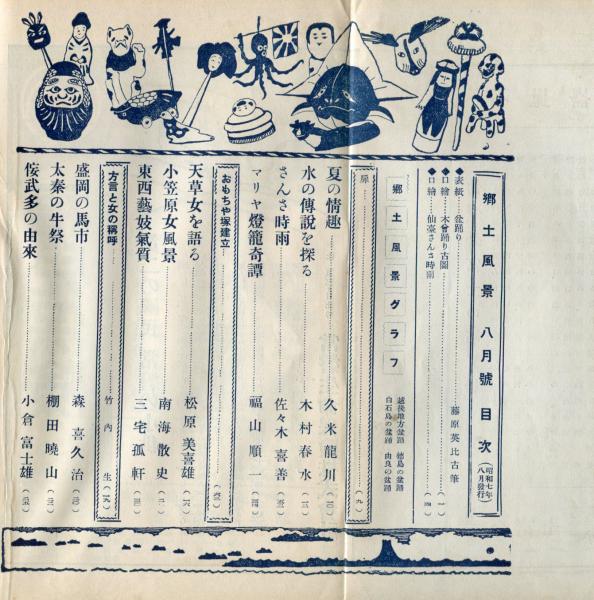 郷土風景 八月號目次(昭和七年八月發行)
◆表紙 盆踊り……藤原英比古筆
◆口繪 木曾踊り古圖……(一)
◆口繪 仙臺さんさ時雨……(四)
郷土風景グラフ
越後地方盆踊 德島の盆踊
白石島の盆踊 由良の盆踊
扉……(九)
夏の情趣……久米龍川
水の傳說を探る……木村春水
さんさ時雨……佐々木喜善
マリヤ燈籠奇譚……福山順一
おもちや塚建立……
天草女を語る……松原美喜雄
小笠原女風景……南海散史
東西藝妓氣質……三宅孤軒
方言と女の稱呼……竹內生
盛岡の馬市……森喜久治
太秦の牛祭……棚田曉山
侫武多の由來……小倉富士雄